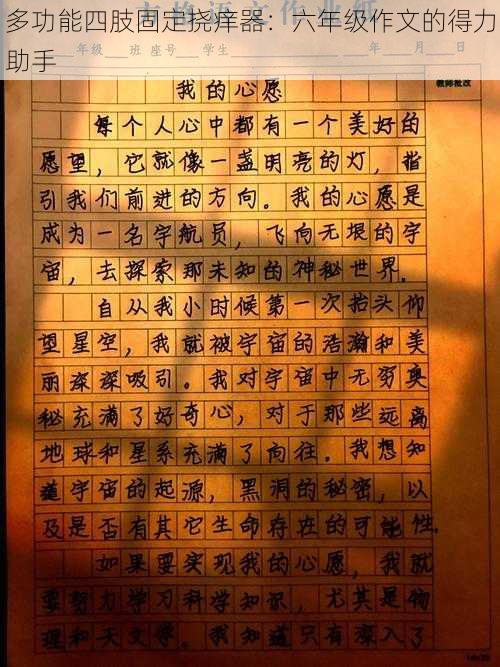 多功能四肢固定挠痒器：六年级作文的得力
助手
语文作业纸
年级 班 座号 学生
我的心愿
教师批改
每个人心中都有一个美好的
愿望，它就像一盏明亮的灯，指
引我们前进的方向。我的心愿是
成为一名宇航员，飞向无垠的宇
宙，去探索那未知的神秘世界。
自从我小时候第一次抬头仰
望星空，我就被宇宙的浩瀚和美
丽深深吸引。我对宇宙中无穷奥
秘充满了好奇心，对于那些远离
地球和星系充满了向往。我想知
道宇宙的起源，黑洞的秘密，以
及是否有其它生命存在的可能性。
如果要实现我的心愿，我就
要努力学习科学知识，尤其是物
理和天文学。我知道只有深入了